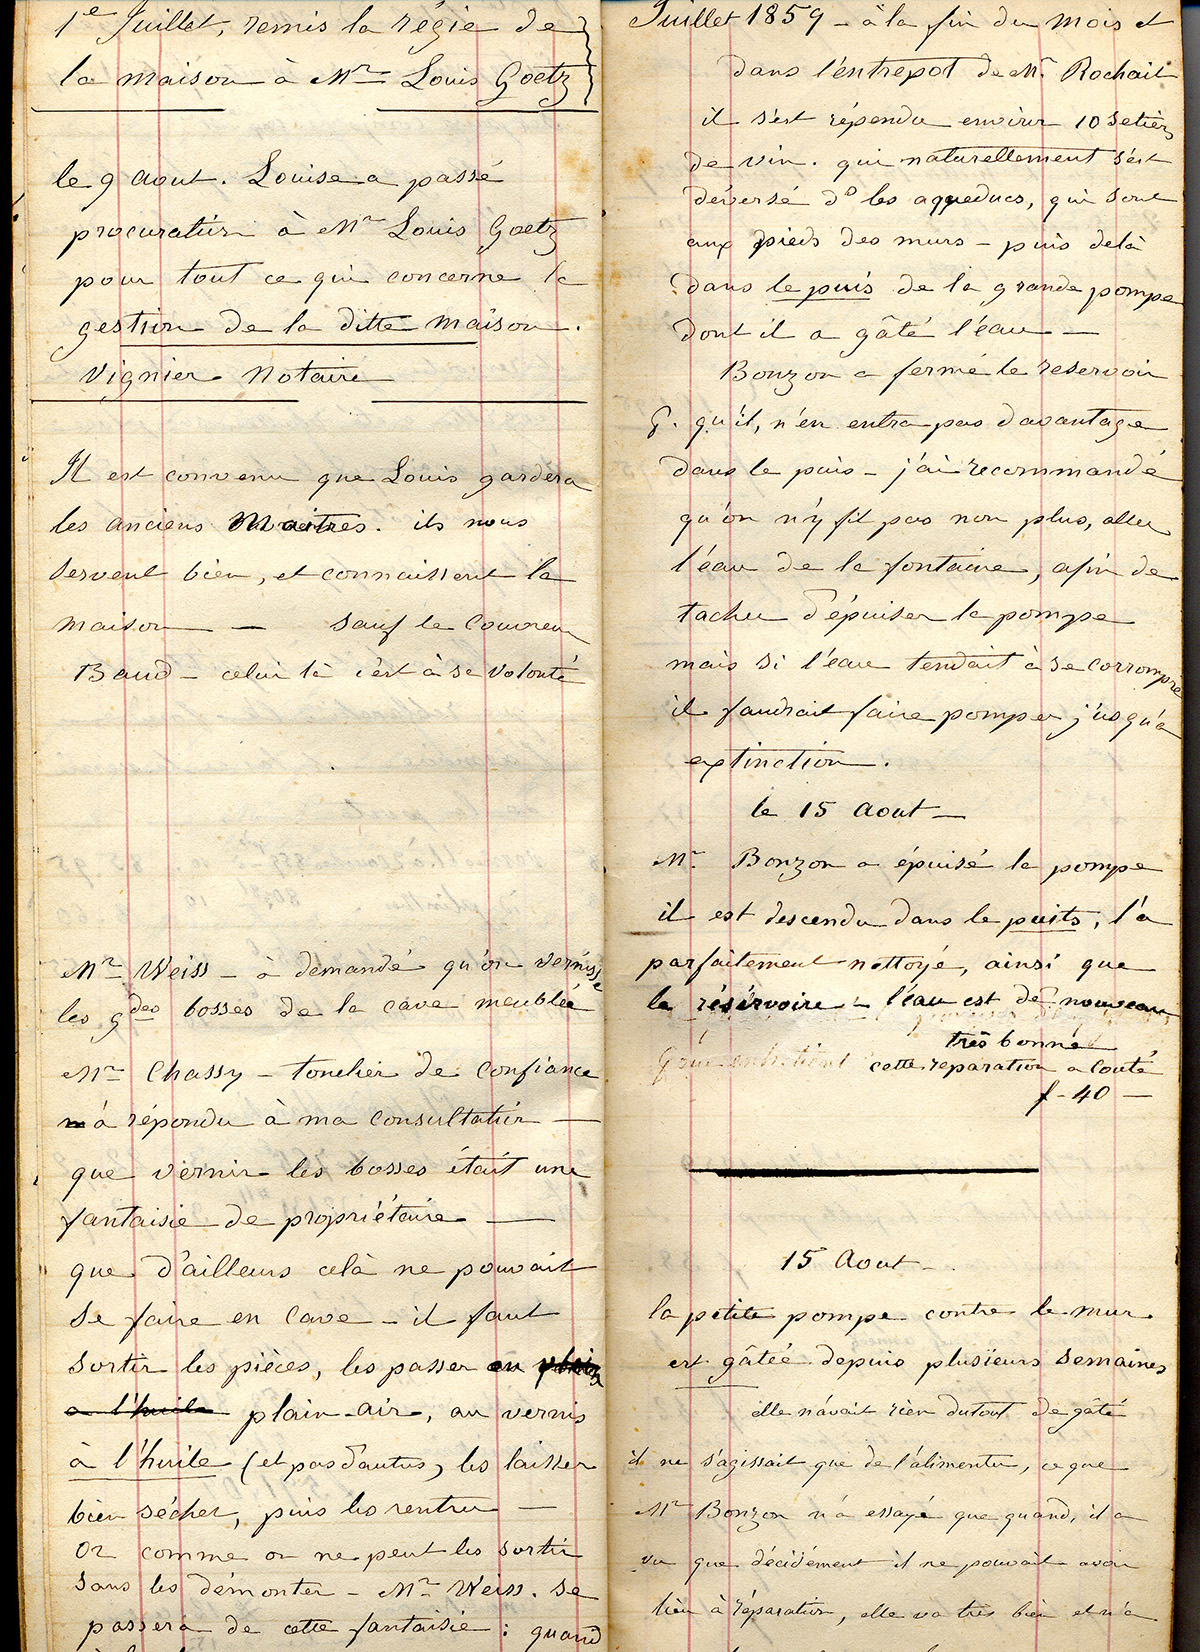 1e Juillet, remis la régie de
la maison à Mr Louis Goetz
le 9 Aout. Louise a passé
procuration à Mr Louis Goetz
pour tout ce qui concerne la
gestion de la ditte maison.
Vignier Notaire
Il est convenu que Louis gardera
les anciens Maitres. ils nous
servent bien, et connaissent la
maison — sauf le Couvreur
Baud - celui là c'est à sa volonté
Mr Weiss - à démandé qu'on vernisse
les gdes bosses de la cave meublée
Mr Chassy - tonelier de confiance
à répondu à ma consultation —
que vernir les bosses était une
fantaisie de propriétaire —
que d'ailleurs celà ne pouvait
se faire en Cave - il faut
sortir les pièces, les passer en plein
a l'huile plain-air, au vernis
à l'huile (et pas d'autres, les laisser
bien sécher, puis les rentrer —
Or comme on ne peut les sortir
sans les démonter - Mr Weiss. se
passera de cette fantaisie : quand
Juillet 1859 - à la fin du mois et
dans l'éntrepot de Mr. Rochait
il s'est répendu environ 10 Setiers
de vin. qui naturellement s'est
déversé ds les aqueducs, qui sont
aux pieds des murs - puis delà
dans le puis de la grande pompe
dont il a gâté l'eau —
Bonzon a fermé le reservoir
p. qu'il, n'en entra pas davantage
dans le puis - j'ai recommandé
qu'on n'y fit pas non plus, aller
l'éau de la fontaine, afin de
tacher d'épuiser la pompe
mais si l'eau tendait à se corrompre
il faudrait faire pomper j'usqu'a
extinction.
le 15 Aout —
Mr. Bonzon a épuisé la pompe
il est descendu dans le puits, l'a
parfaitement nettoyé, ainsi que
le résérvoire - l'éau est de nouveau
très bonne
cette reparation a Couté
f - 40 —
15 Aout -
la petite pompe contre le mur
est gâtée depuis plusieurs semaines
elle n'avait rien dutout de gâté
il ne s'agissait que de l'alimenter, ce que
Mr Bonzon n'a essayé que quand, il a
vu que décidément il ne pouvait avoir
lieu à réparation, elle va très bien et n'a